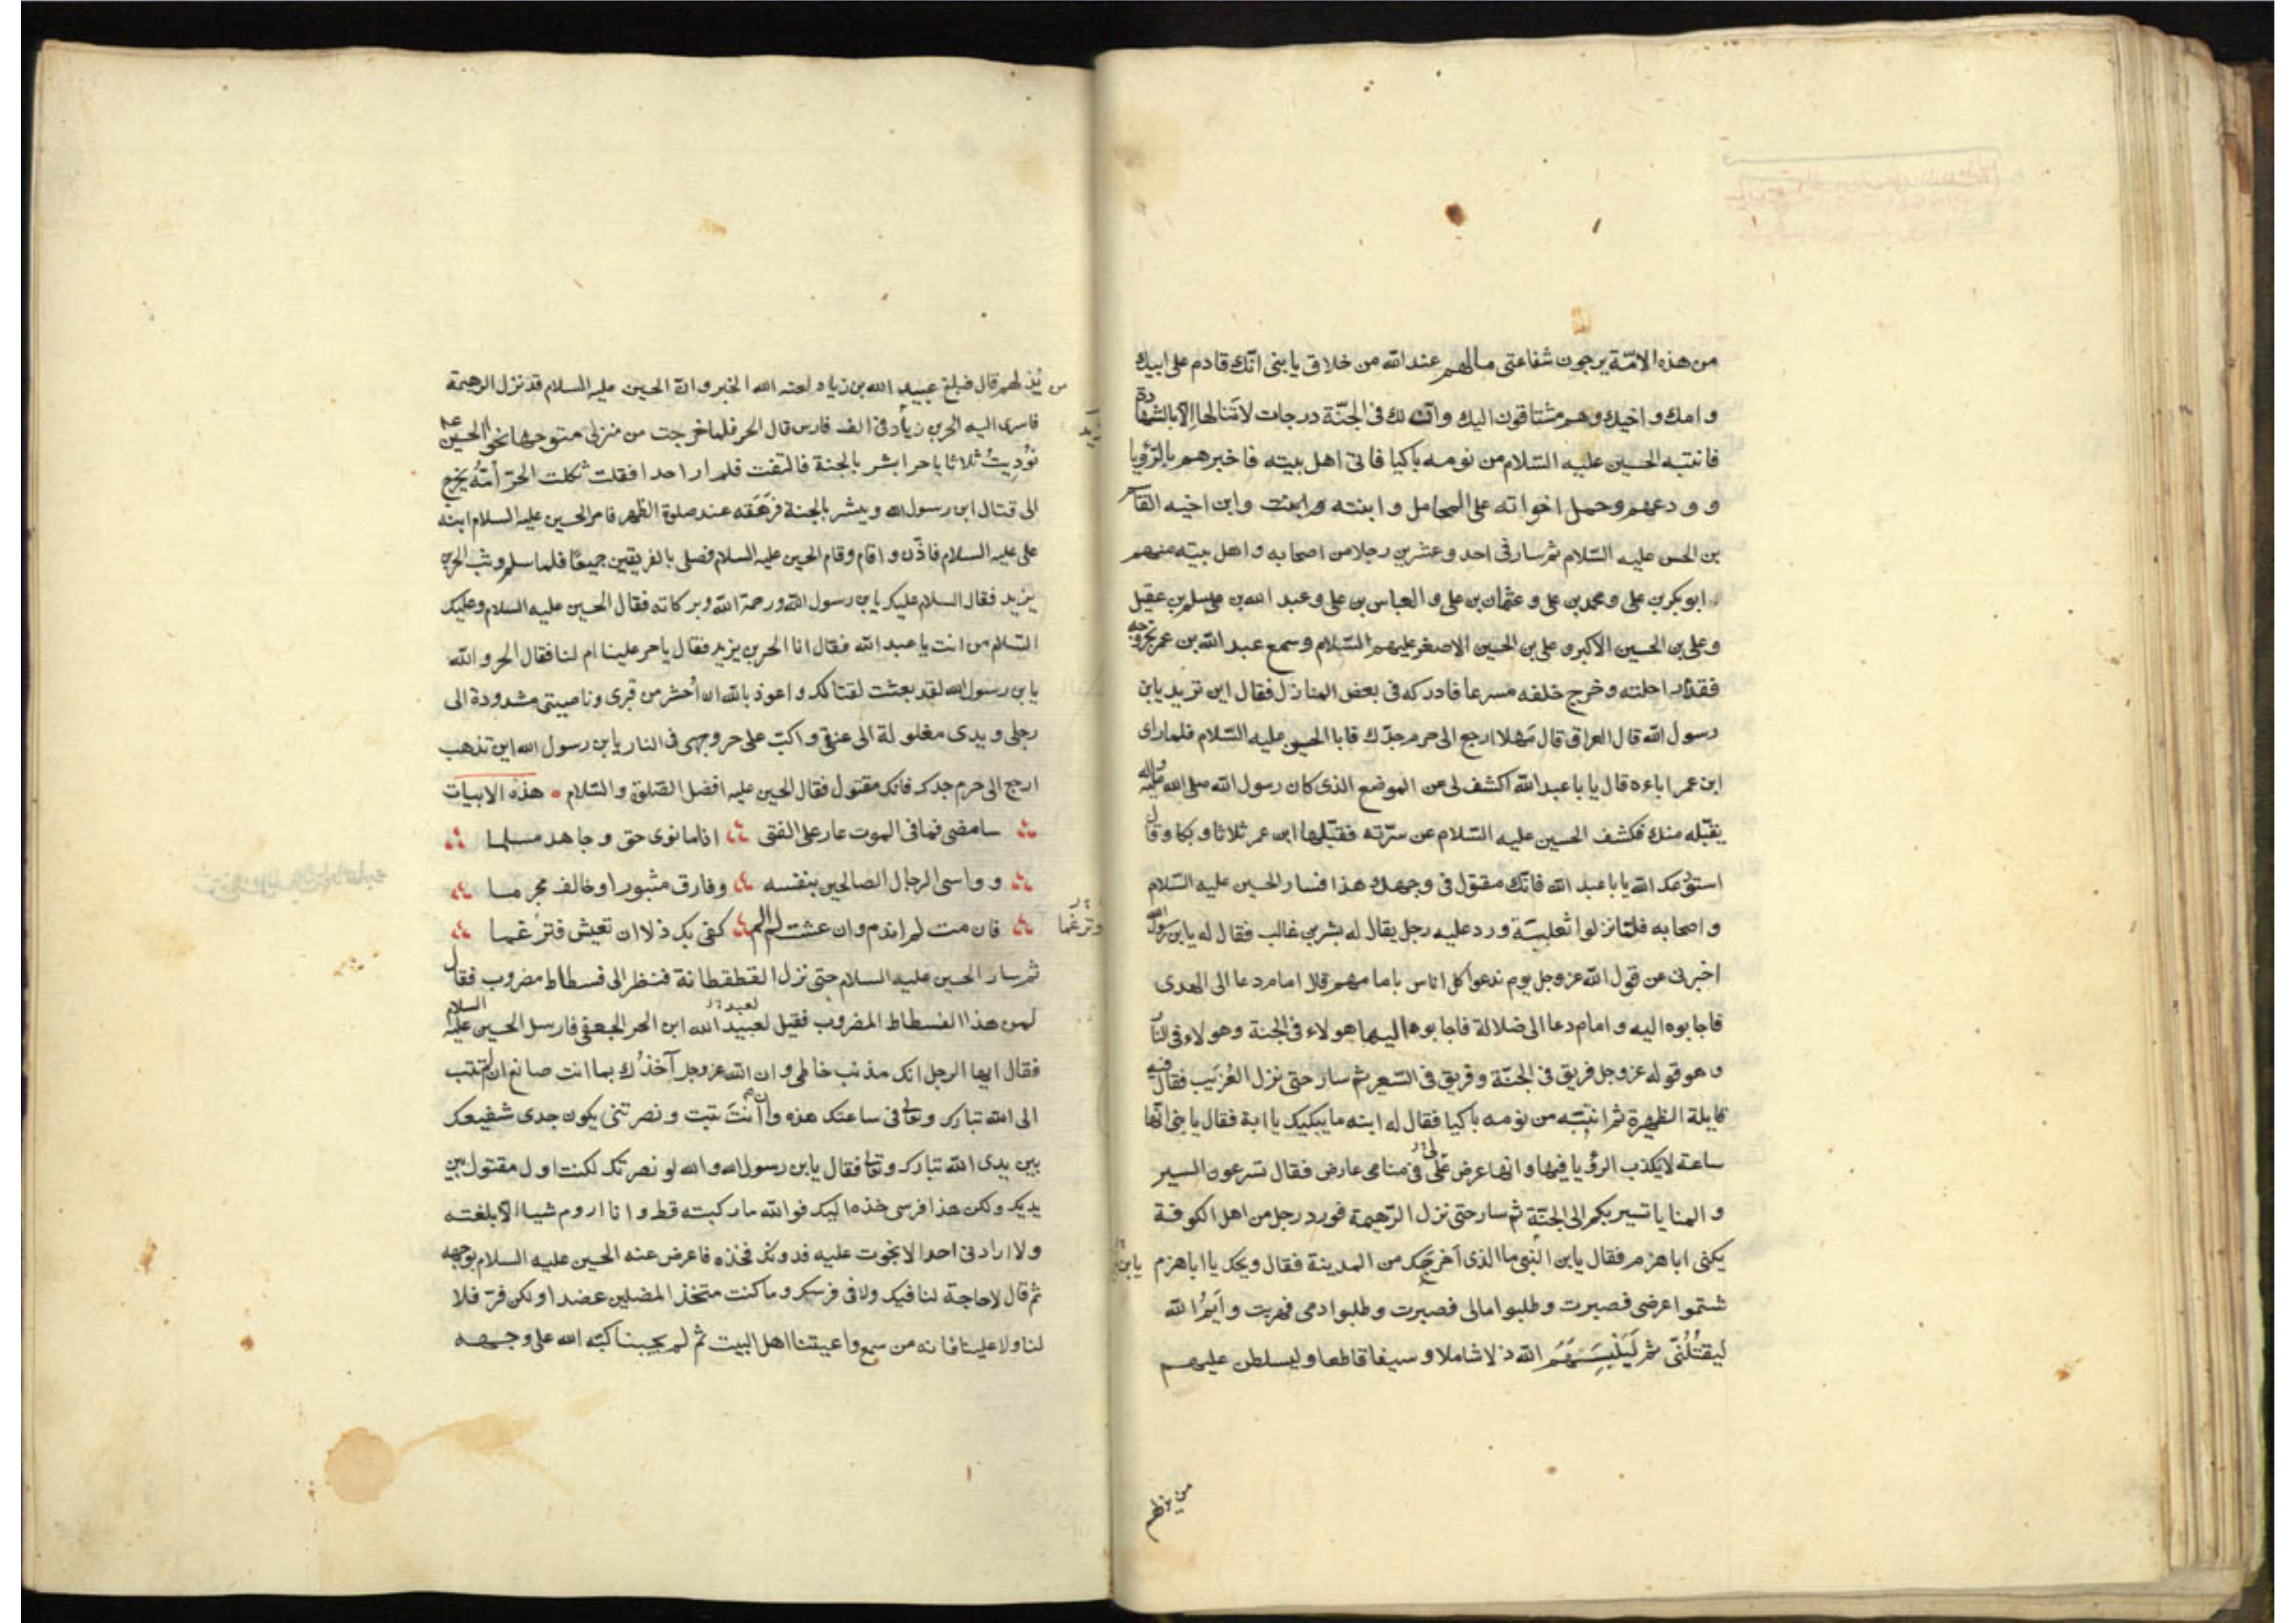 من هذه الامّة يرجون شفاعتى مالهم عند الله من خلاق يا بنى انّك قادم على ابيك
وامك واخيك وهم مشتاقون اليك وان لك فى الجنّة درجات لا تنالها الا بالشهادة
فانتبه الحسين عليه السّلام من نومه باكيا فاتى اهل بيته فاخبرهم بالرّؤيا
وودعهم وحمل اخواته على المحامل وابنته وابن اخيه القاسم
بن الحسن عليه السّلام ثم سار فى احد وعشرين رجلا من اصحابه واهل بيته منهم
ابو بكر بن على ومحمد بن على وعثمان بن على والعباس بن على وعبد الله بن مسلم بن عقيل
وعلى بن الحسين الاكبر وعلى بن الحسين الاصغر عليهم السّلام وسمع عبد الله بن عمر بخروجه
فقدّم راحلته وخرج خلفه مسرعا فادركه فى بعض المنازل فقال اين تريد يا بن
رسول الله قال العراق قال مهلا ارجع الى حرم جدّك فابا الحسين عليه السّلام فلما راى
ابن عمر اباءه قال يا با عبد الله اكشف لى من الموضع الذى كان رسول الله صلى الله عليه واله
يقبّله منك فكشف الحسين عليه السّلام عن سرّته فقبّلها ابن عمر ثلاثا وبكا وقال
استودعك الله يا با عبد الله فانّك مقتول فى وجهك هذا فسار الحسين عليه السّلام
واصحابه فلمّا نزلوا ثعلبيّة ورد عليه رجل يقال له بشر بن غالب فقال له يا بن رسول الله
اخبرنى عن قول الله عز وجل يوم ندعوا كل اناس بامامهم قال امام دعا الى الهدى
فاجابوه اليه وامام دعا الى ضلالة فاجابوه اليها هولاء فى الجنة وهولاء فى النار
وهو قوله عز وجل فريق فى الجنّة وفريق فى السّعير ثم سار حتى نزل العُزَيب فقال فيه
قايلة الظهيرة ثم انتبه من نومه باكيا فقال له ابنه ما يبكيك يا ابة فقال يا بنى انّها
ساعة لا يكذب الرؤيا فيها وانها عرض علىّ فى منامى عارض فقال تسرعون السير
والمنايا تسير بكم الى الجنّة ثم سار حتى نزل الرّهيمة فورد رجل من اهل الكوفة
يكنى ابا هزم فقال يا بن النّبى ما الذى اخرجك من المدينة فقال ويحك يا ابا هزم
شتموا عرضى فصبرت وطلبوا مالى فصبرت وطلبوا دمى فهربت وأيمُ الله
ليقتُلُنّى ثم لَيُلْبِسَنَّهُمُ الله ذلا شاملا وسيفا قاطعا وليسلطن عليهم
من يذلهم
من يُذلهم قال فبلغ عبيد الله بن زياد لعنه الله الخبر وانّ الحسين عليه السلام قد نزل الرهيمة
فاسرى اليه الحر بن زياد فى الف فارس قال الحر فلما خرجت من منزلى متوجها نحو الحسين
نُودِيتُ ثلاثا يا حر ابشر بالجنة فالتفت فلم ار احدا فقلت ثكلت الحرّ أمّه يخرج
الى قتال ابن رسول الله ويبشر بالجنة فرَهَقَه عند صلوة الظهر فامر الحسين عليه السلام ابنه
على عليه السلام فاذّن واقام وقام الحسين عليه السلام فصلى بالفريقين جميعًا فلما سلم وثب الحر بن
يزيد فقال السلام عليك يا بن رسول الله ورحمة الله وبركاته فقال الحسين عليه السلام وعليك
السّلام من انت يا عبد الله فقال انا الحر بن يزيد فقال يا حر علينا ام لنا فقال الحر والله
يا بن رسول الله لقد بعثت لقتالك واعوذ بالله ان اُحشر من قبرى وناصيتى مشدودة الى
رجلى ويدى مغلولة الى عنقى واكبّ على حر وجهى فى النار يا بن رسول الله اين تذهب
ارجع الى حرم جدك فانك مقتول فقال الحسين عليه افضل الصّلوة والسّلام هذه الابيات
سامضى فما فى الموت عار على الفتى اذا ما نوى حق وجاهد مسلما
وواسى الرجال الصالحين بنفسه وفارق مثبورا وخالف مجرما
فان مت لم اندم وان عشت لم الم كفى بك ذلا ان تعيش فترُغما
وترغما
ثم سار الحسين عليه السلام حتى نزل القطقطانة فنظر الى فسطاط مضروب فقال
لمن هذا الفسطاط المضروب فقيل لعبيد الله ابن الحر الجعفى فارسل الحسين عليه السلام
فقال ايها الرجل انك مذنب خاطى وان الله عز وجل آخذُك بما انت صانع ان لم تتب
الى الله تبارك وتعالى فى ساعتك هذه وان أنتَ تبت ونصرتنى يكون جدى شفيعك
بين يدى الله تبارك وتعالى فقال يا بن رسول الله والله لو نصرتك لكنت اول مقتول بين
يديك ولكن هذا فرسى خذه اليك فوالله ما ركبته قط وانا اروم شيا الّا بلغته
ولا ارادنى احد الا نجوت عليه فدونك فخذه فاعرض عنه الحسين عليه السلام بوجهه
ثم قال لا حاجة لنا فيك ولا فى فرسك وما كنت متخذ المضلين عضدا ولكن فرّ فلا
لنا ولا علينا فانه من سمع واعيتنا اهل البيت ثم لم يجبنا كبّه الله على وجهه